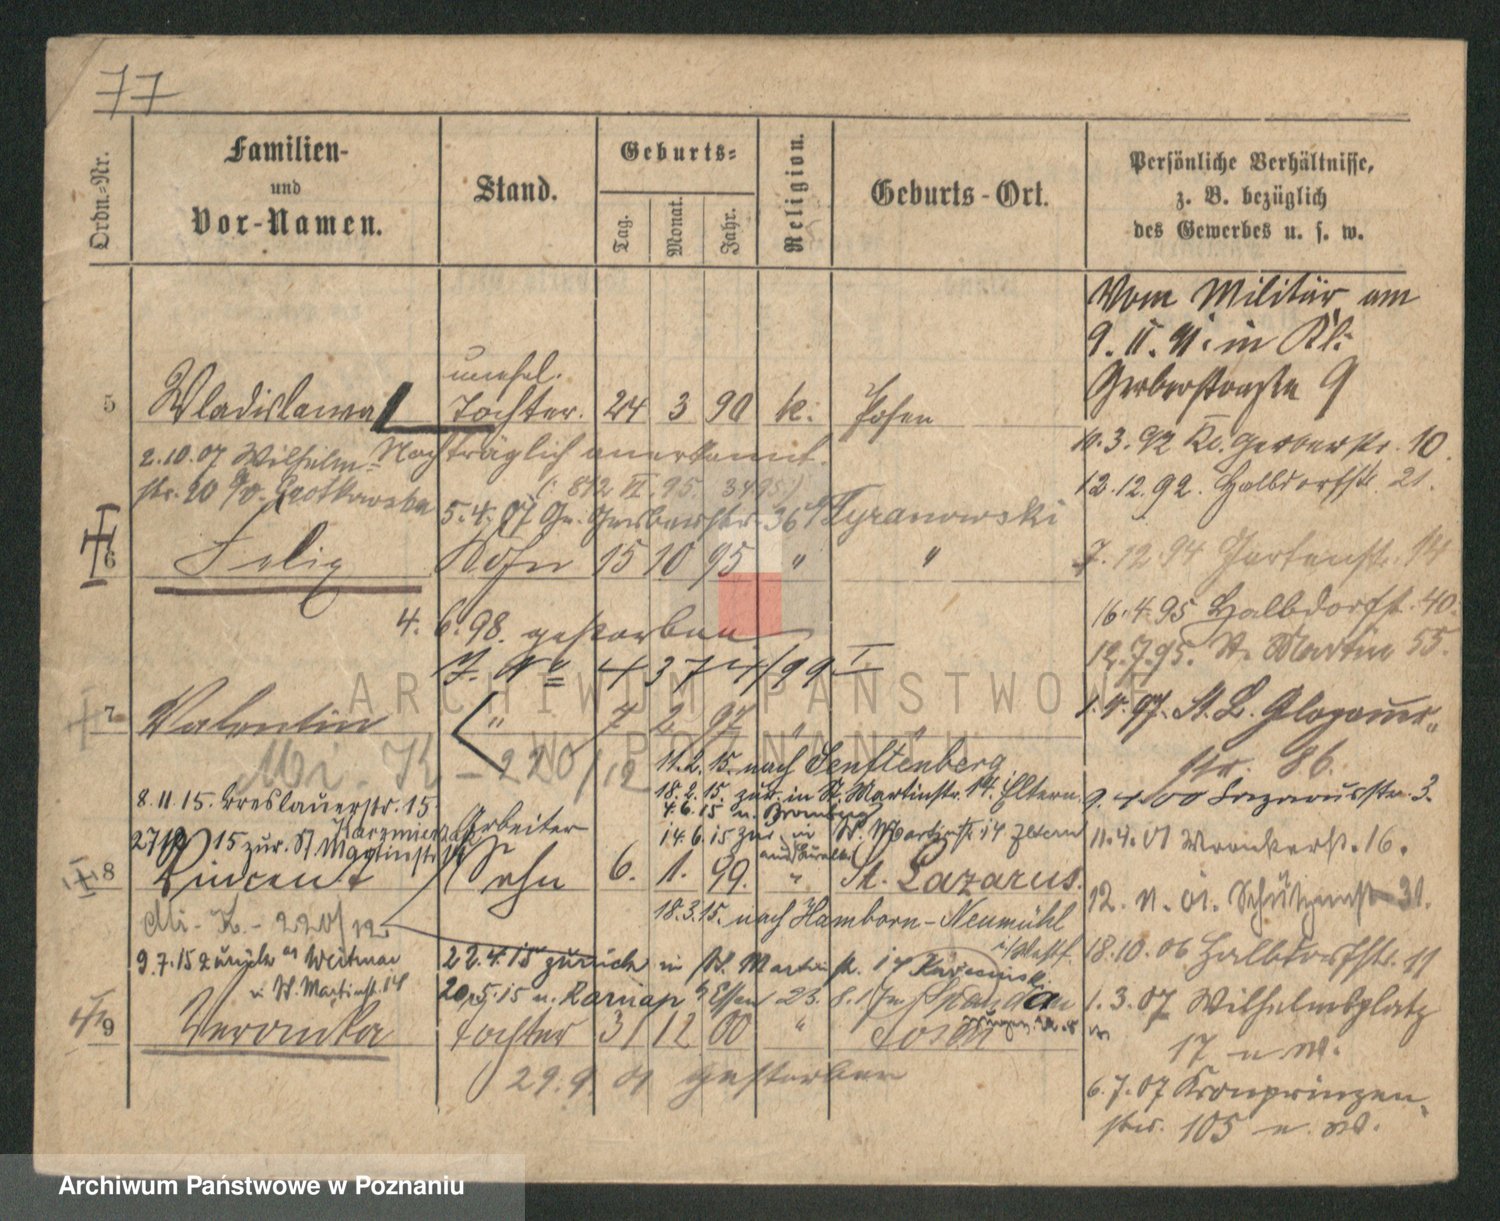 77
Ordn.-Nr.
Familien-
und
Vor-Namen.
Stand.
Geburts-
Tag.
Monat.
Jahr.
Religion.
Geburts-Ort.
Persönliche Verhältnisse,
z. B. bezüglich
des Gewerbes u. s. w.
Vom Militär am
9. II. 91. in Kl:
Gerberstraße 9
unehel.
5 Wladislawa Tochter. 24 3 90 k. Posen
10.3.92 Kl. Gerberstr. 10.
2.10.07 Wilhelm- Nachträglich anerkannt.
12.12.92. Halbdorfstr. 21.
str. 20
5.4.07 Gr. Gerberstr. 36 Tyranowski
6 Felix Sohn 15 10 95 " "
7.12.94 Gartenstr. 14
16.4.95 Halbdorfst. 40.
4. 6. 98. gestorben
12.7.95. St. Martin 55.
J. No 4374/99 I.
1.V.97. St. L. Glogauer-
str. 86.
7 Valentin " 7 2 97 " "
Mi. K - 220/12
11.2.15. nach Senftenberg
18.2.15. zur. in St. Martinstr. 14. i/ Eltern.
9.4.00 Lazarusstr. 3.
8.11.15. Breslauerstr. 15
4.6.15 n. Bromberg
14.6.15 zur in St. Martinstr. 14 Eltern
11.4.01 Wronkerst. 16.
15 zur. St. Martinstr. 14
Arbeiter
8 Vincent Sohn 6. 1. 99. " St. Lazarus.
12. 11. 01. Schützenst 31.
Mi. K. - 220/12
18.3.15. nach Hamborn-Neumühl
i/Westf.
18.10.06 Halbdorfstr. 11
9.7.15 zurück aus Weitmar
22.4.15 zurück in St. Martin str. 14
in St. Martinst. 14
20.5.15 n. Karnap b/Essen 23. 8. 17 n. Spandau
1.3.07 Wilhelmsplatz
17 u. W.
9 Veronika Tochter 31 12 00 " Posen
29.9 01 gestorben
6.7.07 Kronprinzen-
str. 105 u. W.
ARCHIWUM PAŃSTWOWE
W POZNANIU
Archiwum Państwowe w Poznaniu